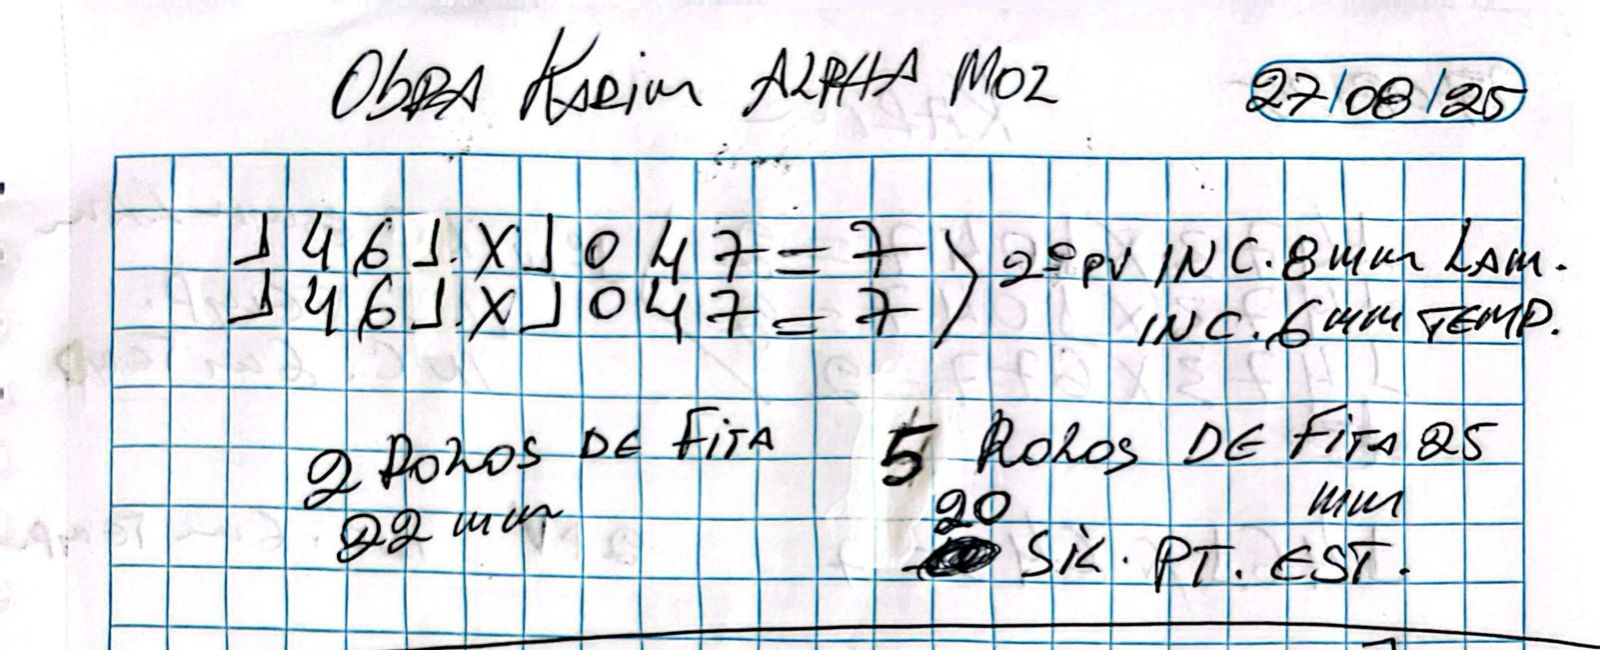 OBRA KARim ALPHA MOZ 27/08/25
1461 X 1047 = 7 > 2º PV INC. 8mm LAM.
1461 X 1047 = 7 INC. 6mm TEMP.
2 ROLOS DE FITA 22 mm
5 ROLOS DE FITA 25 mm
20 SIL. PT. EST.